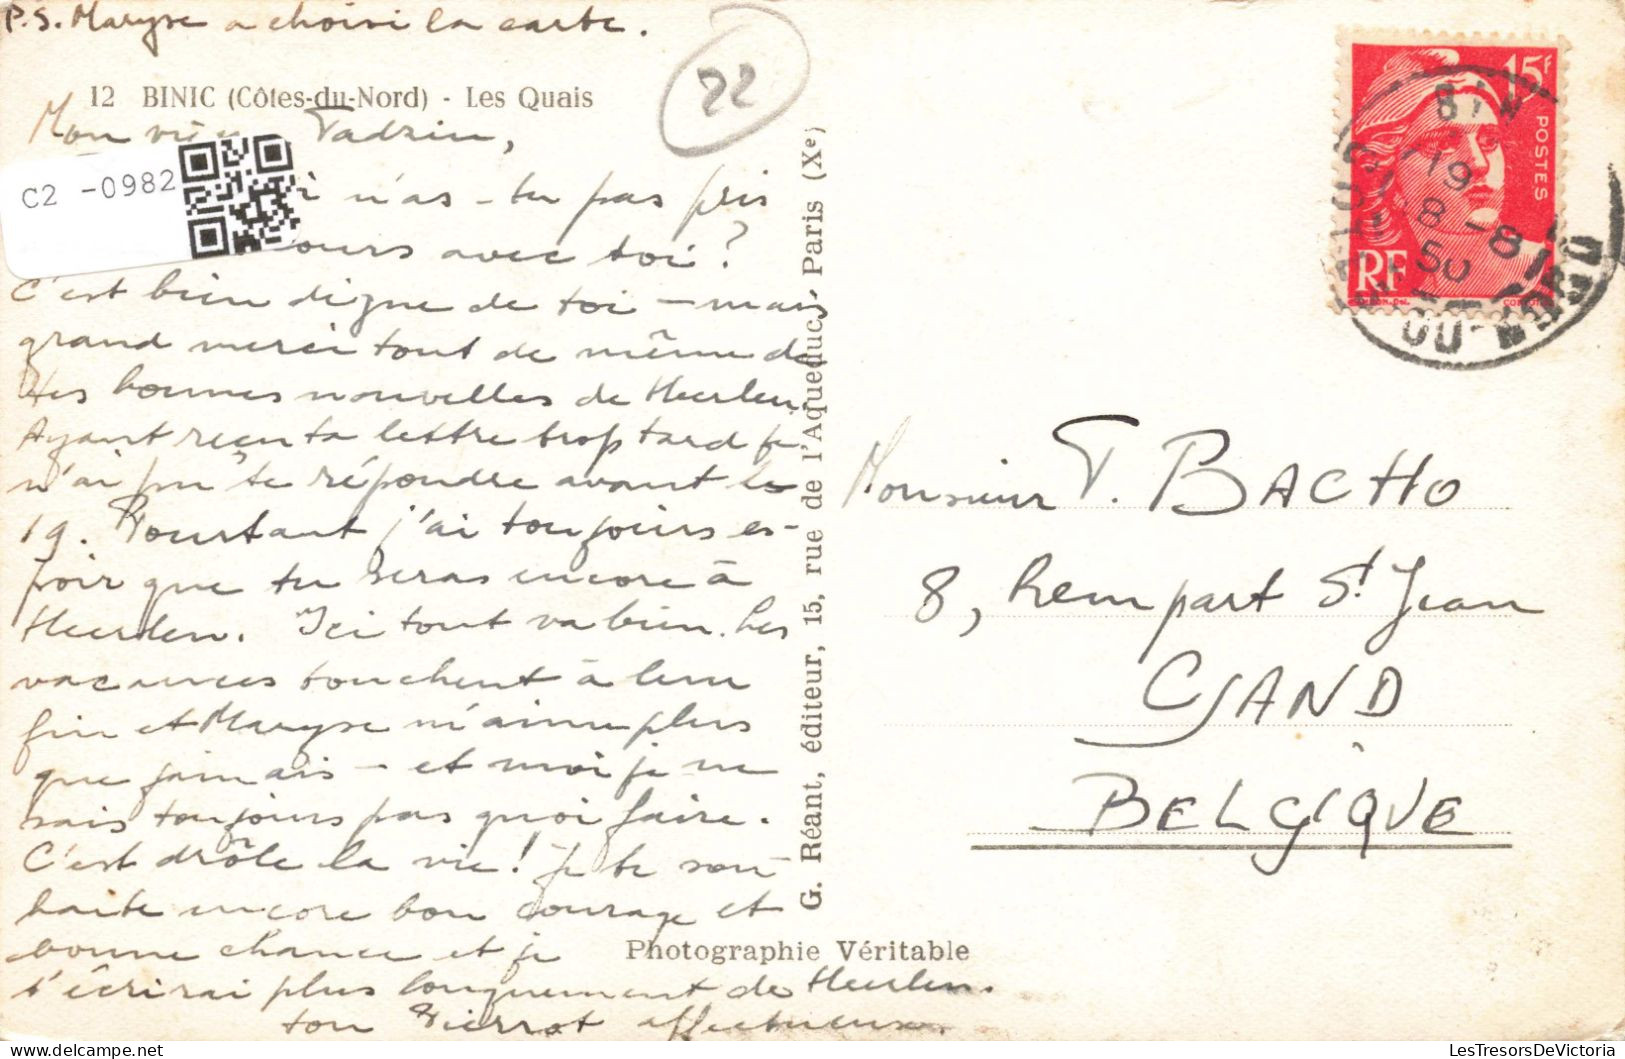 P.S. Maryse a choisi la carte.
22
12 BINIC (Côtes-du-Nord) - Les Quais
Mon Tadzin,
C2 -0982
n'as-tu pas pris
avec toi?
C'est bien digne de toi - mais
grand merci tout de même de
tes bonnes nouvelles de Heerlen.
Ayant reçu ta lettre trop tard je
n'ai pu te répondre avant le
19. Pourtant j'ai toujours es-
poir que tu seras encore à
Heerlen. Ici tout va bien. Les
vacances touchent à leur
fin et Maryse m'aime plus
que jamais - et moi je ne
sais toujours pas quoi faire.
C'est drôle la vie! Je te sou-
haite encore bon courage et
bonne chance et je
t'écrirai plus longuement de Heerlen.
ton Pierrot affectueux.
G. Réant, éditeur, 15, rue de l'Aqueduc, Paris (Xe)
Photographie Véritable
15f
POSTES
RF
BIN
19
8-8
50
DU-NORD
Monsieur T. BACHO
8, Rempart St Jean
GAND
BELGIQUE
LesTresorsDeVictoria